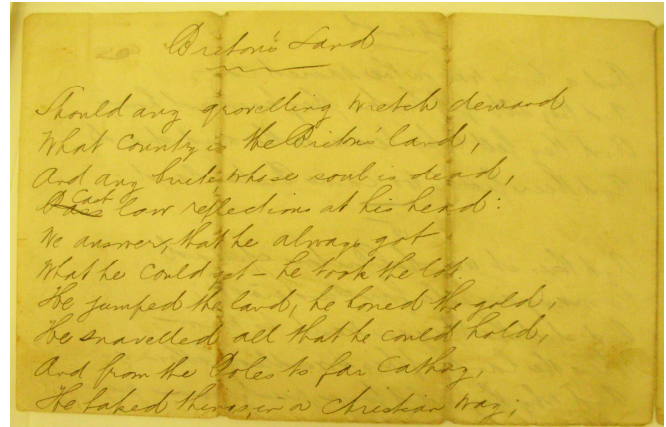 Briton's Land
Should any grovelling wretch demand
What country is the Briton's land,
And any brutes whose soul is dead,
Cast low reflections at his head:
We answer, that he always got
What he could get – he took the lot.
He jumped the land, he boned the gold,
He snavelled all that he could hold,
And from the Poles to far Cathay,
He faked things, in a Christian way;